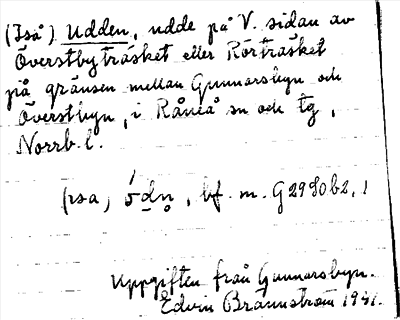 (Iså) Udden, udde på V. sidan av
Överstbyträsket eller Rörträsket
på gränsen mellan Gunnarsbyn och
Överstbyn, i Råneå sn och tg,
Norrb. l.
(psa) bf. m. G2980b2,1
Uppgiften från Gunnarsbyn.
Edvin Brännström 1941.